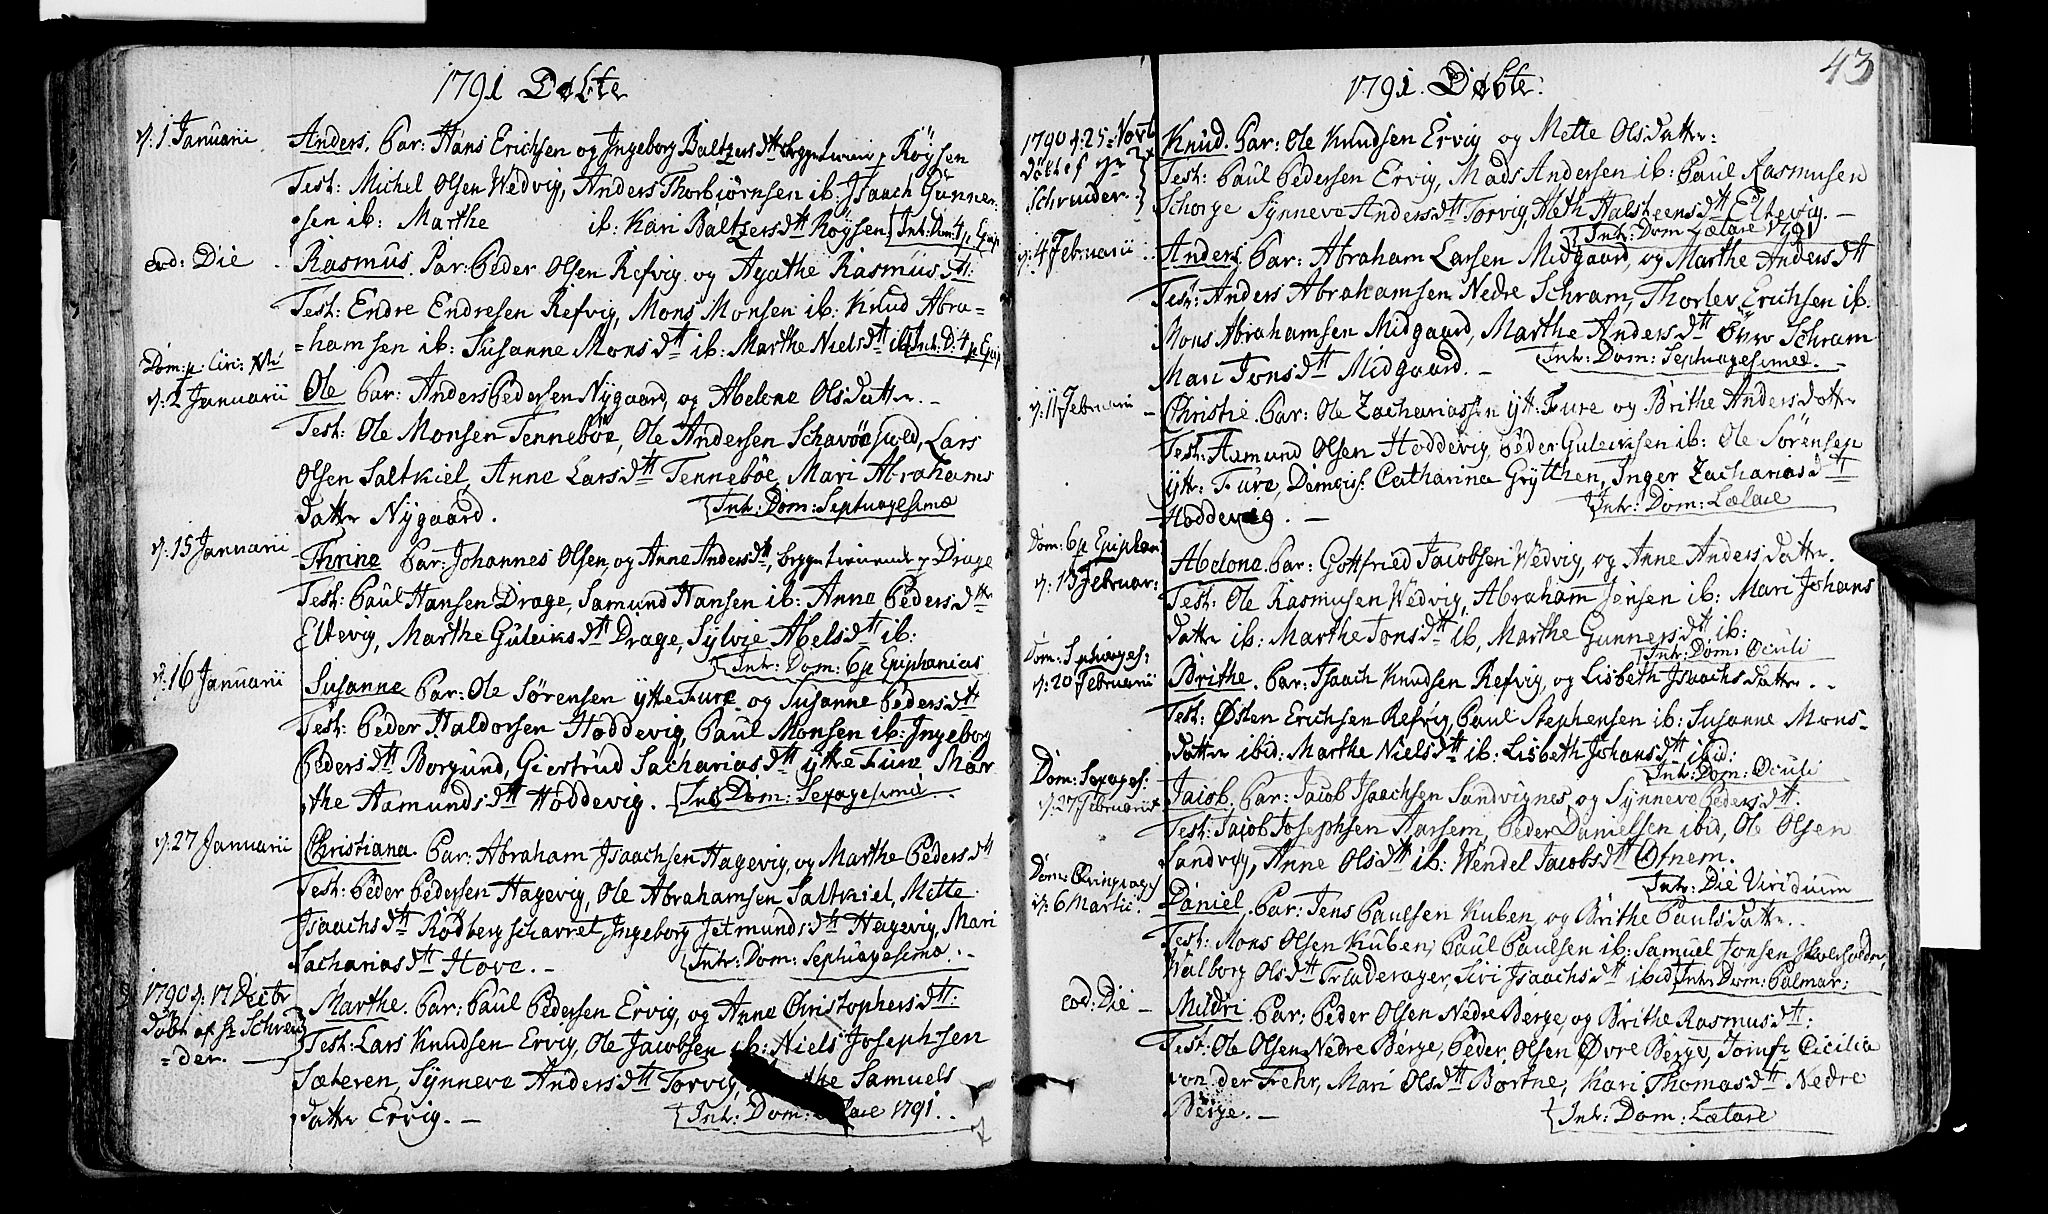 1791 Døbte
d: 1 Januarii
Anders. Par: Hans Erichsen og Ingeborg Baltzersdtt Röysen
Test: Michel Olsen Wedvig, Anders Thorbiörnsen ib: Isaach Gunner-
sen ib: Marthe ib: Kari Baltzersdtt Röysen Intr: Dom: 4 p Epip
eod: Die
Rasmus. Par: Peder Olsen Refvig og Agathe Rasmusdtt:
Test: Endre Endresen Refvig, Mons Monsen ib: Knud Abra=
=hamsen ib: Susanne Monsdtt ib: Marthe Nielsdtt ib: Intr: D: 4 p Epip
Dom: p. Circ:
d: 2 Januarii
Ole Par: Anders Pedersen Nygaard, og Abelone Olsdatter. -
Test: Ole Monsen Tenneböe, Ole Andersen Lars
Olsen Saltkiel, Anne Larsdtt Tenneböe, Mari Abrahams
datter Nygaard. Intr: Dom: Septuagesimæ
d: 15 Januarii
Thrine Par: Johannes Olsen, og Anne Andersdtt, Drage
Test: Paul Hansen Drage, Samund Hansen ib: Anne Pedersdtr
Eltevig, Marthe Guleiksdtt Drage, Sylvie Abelsdtt ib:
Intr: Dom: 6 p Epiphanias
d: 16 Januarii
Susanne Par: Ole Sørensen ytte Fure og Susanne Pedersdtt
Test: Peder Haldorsen Hoddevig, Paul Monsen ib: Ingeborg
Pedersdtt Borgund, Giertrud Sachariasdtt ytte Fure, Mar
the Aamundsdtt Hoddevig. Intr Dom: Sexagesimæ
d: 27 Januarii
Christiana. Par: Abraham Isaachsen Hagevig, og Marthe Pedersdtt
Test: Peder Pedersen Hagevig, Ole Abrahamsen Saltkiel, Mette
Isaachsdtt Rödbergscharret, Ingeborg Jetmundsdtr Hagevig, Mari
Sachariasdtt Hove. - Intr: Dom: Septuagesima. -
1790 d: 17 Decbr
döbt af Hr Schreu
=der.
Marthe. Par: Paul Pedersen Ervig, og Anne Christophersdtt:
Test: Lars Knudsen Ervig, Ole Jacobsen ib: Niels Josephsen
Sæteren, Synneve Andersdtt Torvig, Samuels
datter Ervig. - Intr: Dom: 1791.
43
1791. Døbte:
1790 d: 25 Novb
döbt af Hr
Schreuder.
Knud. Par: Ole Knudsen Ervig og Mette Olsdatter:
Test: Paul Pedersen Ervig, Mads Andersen ib: Paul Rasmusen
Schorge Synneve Andersdtt Torvig, Halsteensdtt Eltevig. -
Intr: Dom Lætare 1791
d: 4 Februarii
Anders Par: Abraham Larsen Midgaard, og Marthe Andersdtt
Test: Anders Abrahamsen Nedre Schram, Thorlev Erichsen ib.
Mons Abrahamsen Midgaard, Marthe Andersdtt Övre Schram
Mari Jonsdtt Midgaard. - Intr: Dom: Septuagesimæ. -
d: 11 Februarii
Christie Par: Ole Zachariassen ytt: Fure og Brithe Andersdatter
Test: Aamund Olsen Hoddevig Peder Guleiksen ib: Ole Sörensen
ytt: Fure, Catharina Grytthen, Inger Zachariasdtt
Hoddevig. - Intr: Dom: Lætare
Dom: 6 p Epiphan
d: 13 Februar:
Abelone. Par: Gottfried Jacobsen Wedvig, og Anne Andersdatter.
Test: Ole Rasmusen Wedvig, Abraham Jensen ib: Mari Johans
datter ib: Marthe Jonsdtt ib, Marthe Gunnersdtt ib:
Intr: Dom: Oculi
Dom: Septuages:
d: 20 Februarii
Brithe. Par: Isaach Knudsen Refvig, og Lisbeth Isaachsdatter. -
Test: Østen Erichsen Refvig, Paul Stephensen ib: Susanne Mons-
datter ibid: Marthe Nielsdtt ib: Lisbeth Johansdtt ibid:
Intr: Dom: Oculi
Dom: Sexages:
d: 27 Februarii
Jacob. Par: Jacob Isaachsen Sandvignes, og Synneve Pedersdtt.
Test: Jacob Josephsen Aarsem, Peder Danielsen ibid, Ole Olsen
Sandvig, Anne Olsdtt ib: Wendel Jacobsdtt Ofnem.
Intr: Die Viridium
Dom: Qvinqvages
d: 6 Martii.
Daniel, Par: Jens Paulsen Kuben, og Brithe Paulsdatter.
Test: Mons Olsen Kuben, Paul Paulsen ib: Samuel Jonsen
Walborg Olsdtt Siri Isaachsdtt ibid Intr: Dom: Palmar:
eod: Die -
Mildri Par: Peder Olsen Nedre Berge, og Brithe Rasmusdtt:
Test: Ole Olsen Nedre Berge, Peder Olsen Øvre Berge, Jomfr Cicilia
von der Fehr, Mari Olsdtt Bortne, Kari Thomasdtt Nedre
Berge. - Intr: Dom: Lætare